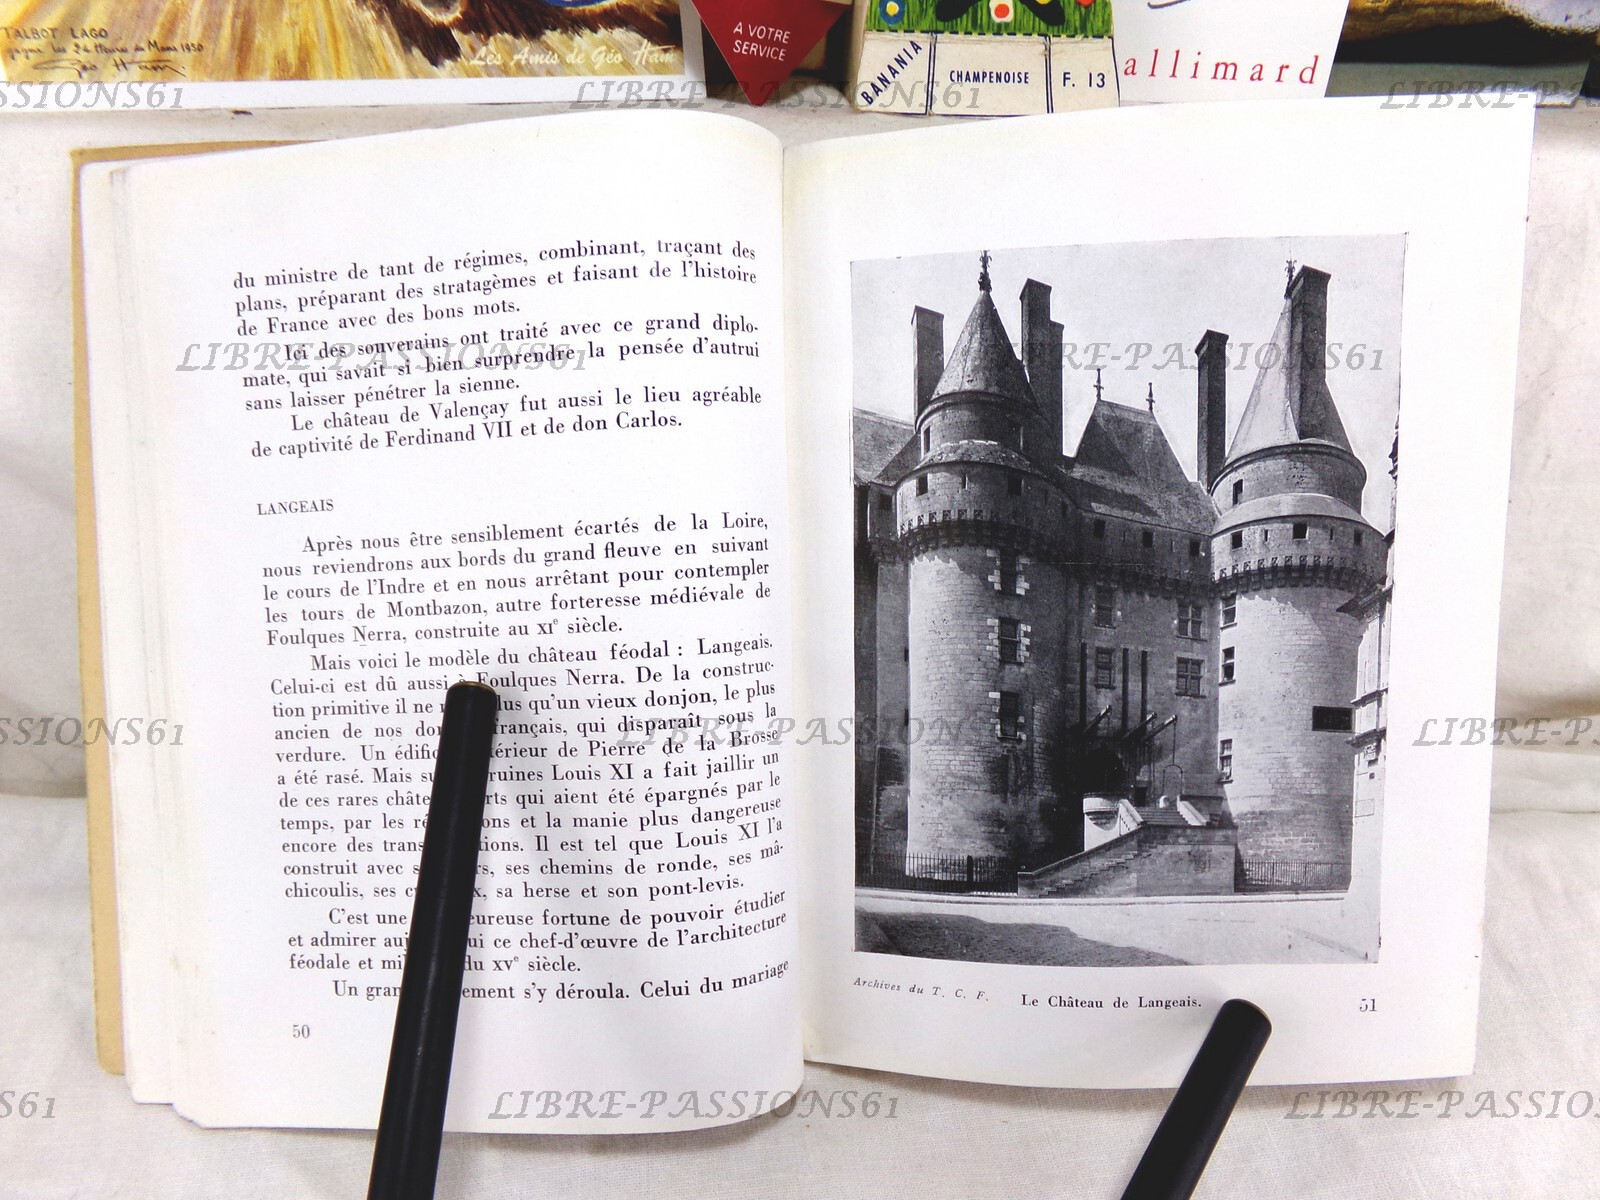 TALBOT LAGO
gagne les 24 Heures du Mans 1950
Géo Ham
Les Amis de Géo Ham
A VOTRE
SERVICE
BANANIA
CHAMPENOISE
F. 13
allimard
du ministre de tant de régimes, combinant, traçant des
plans, préparant des stratagèmes et faisant de l'histoire
de France avec des bons mots.
Ici des souverains ont traité avec ce grand diplo-
mate, qui savait si bien surprendre la pensée d'autrui
sans laisser pénétrer la sienne.
Le château de Valençay fut aussi le lieu agréable
de captivité de Ferdinand VII et de don Carlos.
LANGEAIS
Après nous être sensiblement écartés de la Loire,
nous reviendrons aux bords du grand fleuve en suivant
le cours de l'Indre et en nous arrêtant pour contempler
les tours de Montbazon, autre forteresse médiévale de
Foulques Nerra, construite au XIe siècle.
Mais voici le modèle du château féodal : Langeais.
Celui-ci est dû aussi à Foulques Nerra. De la construc-
tion primitive il ne plus qu'un vieux donjon, le plus
ancien de nos français, qui disparaît sous la
verdure. Un térieur de Pierre de la Brosse
a été rasé. Mais ruines Louis XI a fait jaillir un
de ces rares rts qui aient été épargnés par le
temps, par les ons et la manie plus dangereuse
encore des tions. Il est tel que Louis XI l'a
construit avec rs, ses chemins de ronde, ses mâ-
chicoulis, ses x, sa herse et son pont-levis.
C'est une eureuse fortune de pouvoir étudier
et admirer ui ce chef-d'œuvre de l'architecture
féodale et du XVe siècle.
Un ement s'y déroula. Celui du mariage
50
Archives du T. C. F.
Le Château de Langeais.
51
SSIONS61
LIBRE-PASSIONS61
LIBRE-PA
LIBRE-PASSIONS61
LIBRE-PASSIONS61
SSIONS61
LIBRE-PASSIONS61
LIBRE-P
S61
LIBRE-PASSIONS61
LIBRE-PASSIONS